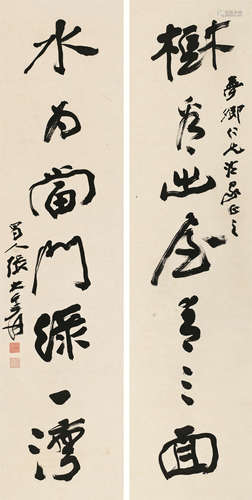 樹看出屋青三面
夢鄉仁兄法家正之
水為當門綠一灣
蜀人張大千爰